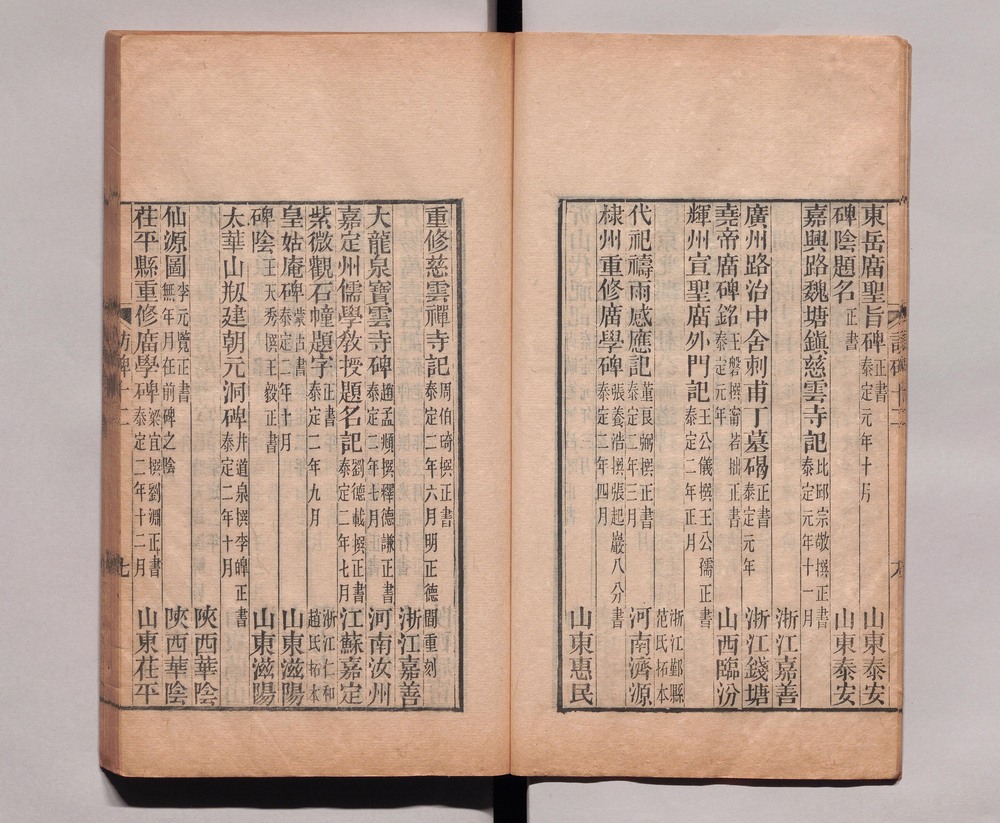 東岳廣聖旨碑 正書 泰定元年十月 山東泰安
碑陰題名 正書 山東泰安
嘉興路魏塘鎮慈雲寺記 比邱宗敬撰正書 泰定元年十一月
浙江嘉善
廣州路治中舍剌甫丁墓碣 正書 泰定元年 浙江錢塘
堯帝廣碑銘 王磐撰甯若拙正書 泰定元年 山西臨汾
輝州宣聖廣外門記 王公儀撰王公孺正書 泰定二年正月
浙江鄞縣范氏拓本
代祀禱雨感應記 董良弼撰正書 泰定二年三月 河南濟源
棣州重修廣學碑 張養浩撰張起巖八分書 泰定二年四月
山東惠民
重修慈雲禪寺記 周伯琦撰正書 泰定二年六月明正德間重刻
浙江嘉善
大龍泉寶雲寺碑 趙孟頫撰釋德謙正書 泰定二年七月 河南汝州
嘉定州儒學教授題名記 劉德載撰正書 泰定二年七月 江蘇嘉定
紫微觀石幢題字 正書 泰定二年九月 浙江仁和趙氏拓本
皇姑庵碑 蒙古書 泰定二年十月 山東滋陽
碑陰 王天秀撰王毅正書 山東滋陽
太華山刱建朝元洞碑 井道泉撰李皞正書 泰定二年十月
陝西華陰
仙源圖 李元覽正書 無年月在前碑之陰 陝西華陰
茌平縣重修廣學碑 梁宜撰劉淵正書 泰定二年十二月 山東茌平
訪碑十二
七